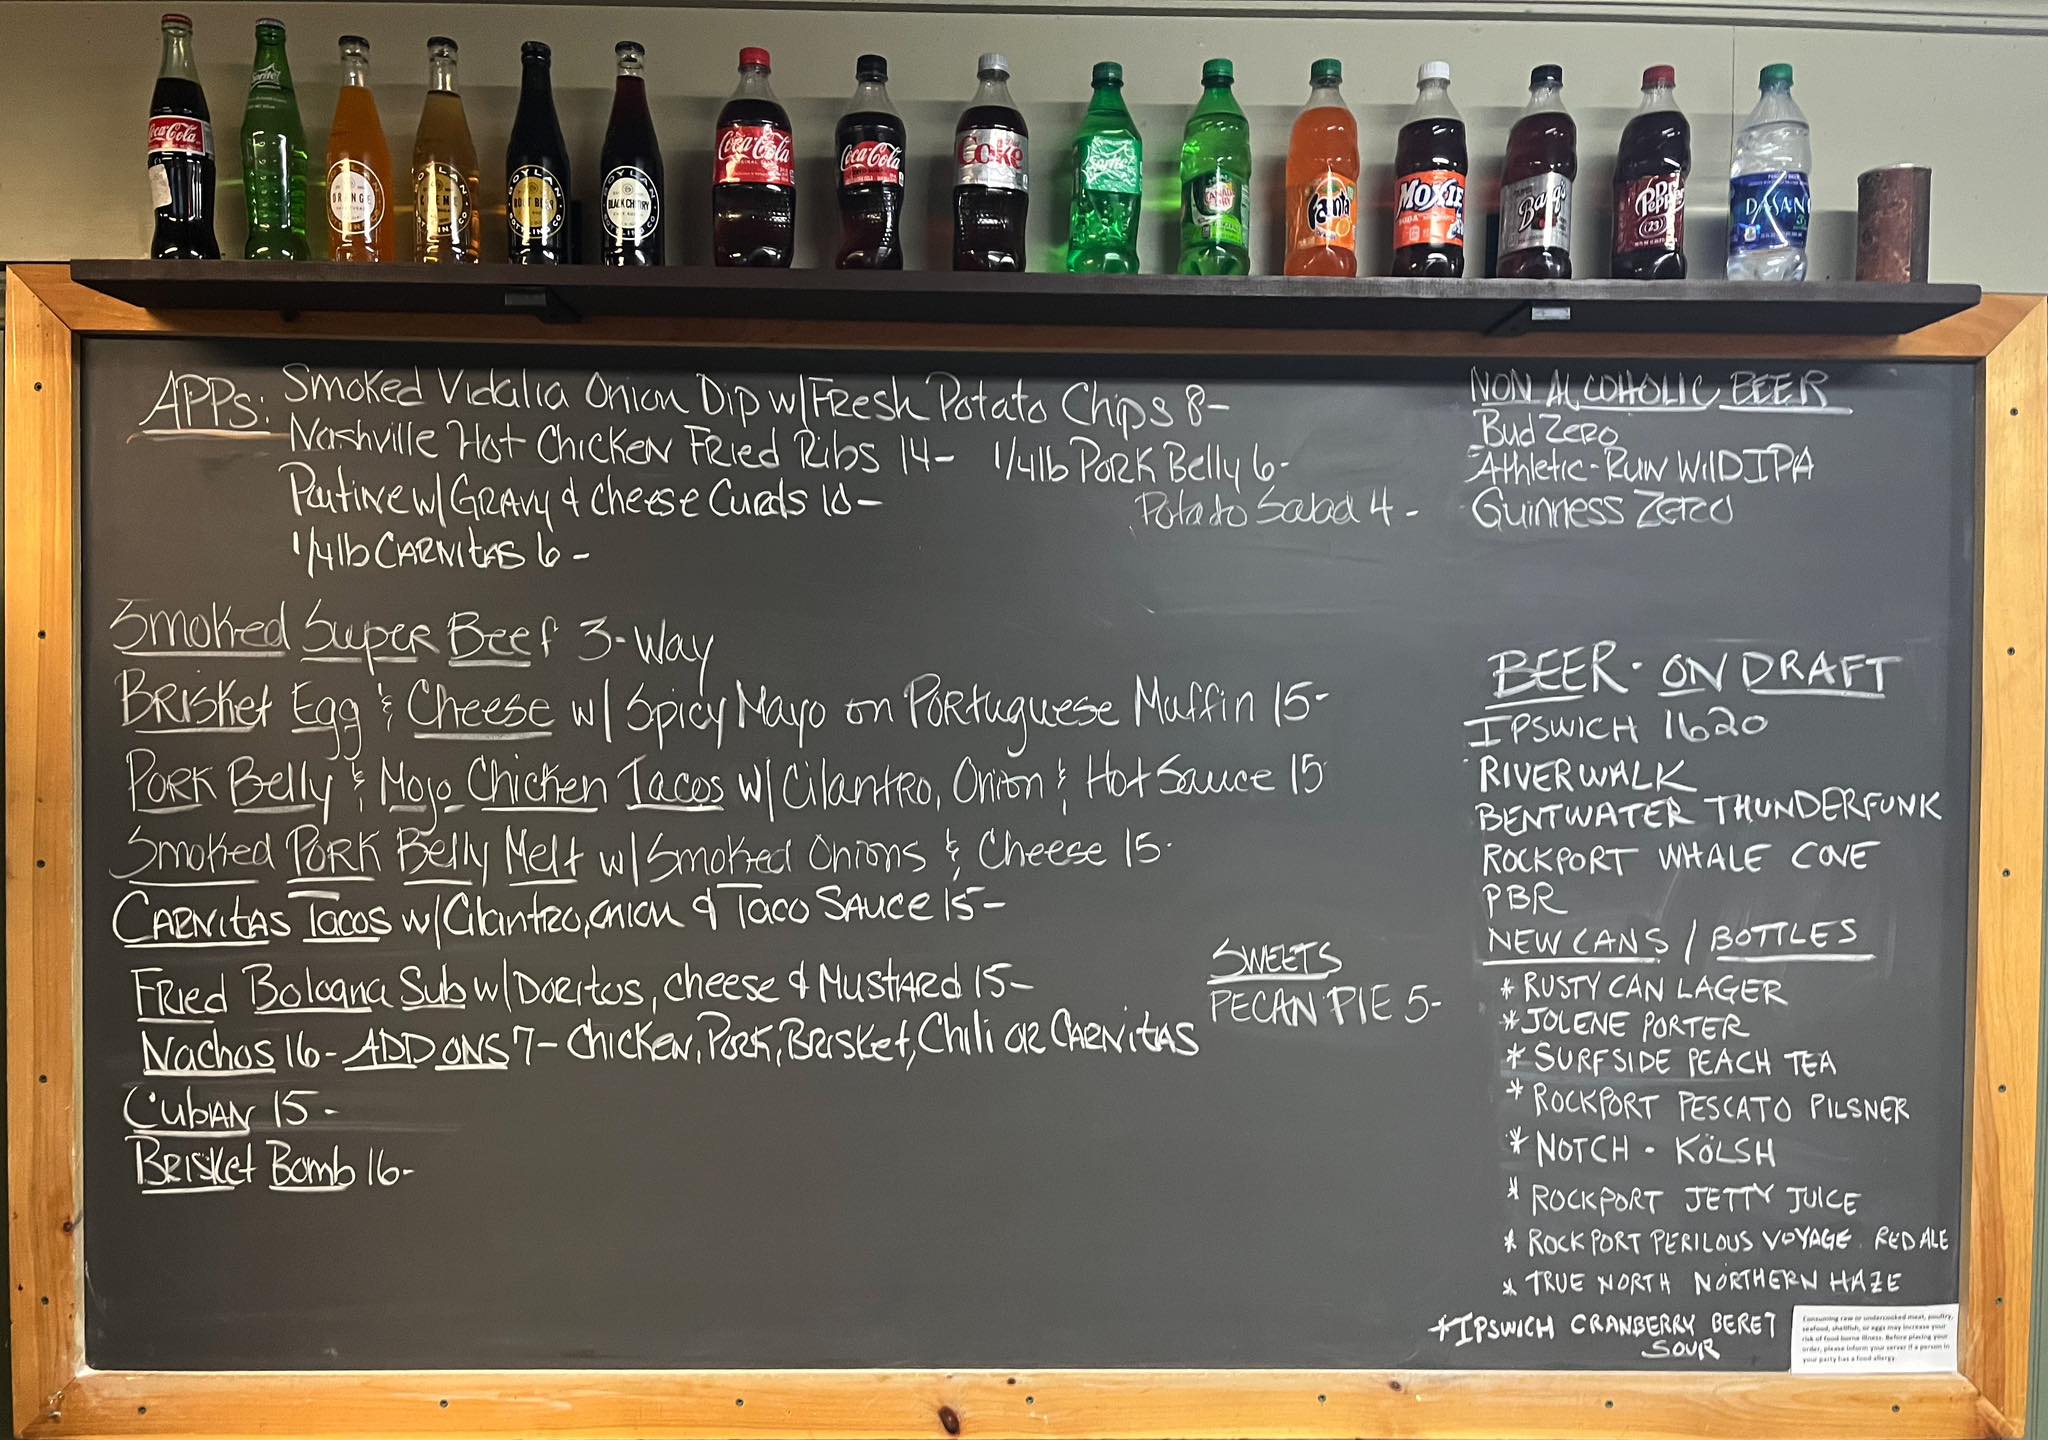 Coca-Cola
Sprite
BOYLAN
ORANGE
BOTTLING CO
CREME
ROOT BEER
BLACK CHERRY
Coca-Cola
Coca-Cola
Coke
Sprite
CANADA DRY
Fanta
MOXIE
Barq's
Dr Pepper
(23)
DASANI
APPs: Smoked Vidalia Onion Dip w/Fresh Potato Chips 8-
Nashville Hot Chicken Fried Ribs 14- 1/4lb Pork Belly 6-
Poutine w/ Gravy & Cheese Curds 10-
Potato Salad 4-
1/4lb CARNITAS 6-
Smoked Super Beef 3-Way
Brisket Egg & Cheese w/ Spicy Mayo on Portuguese Muffin 15-
Pork Belly & Mojo Chicken Tacos w/ Cilantro, Onion & Hot Sauce 15
Smoked Pork Belly Melt w/ Smoked Onions & Cheese 15-
CARNITAS Tacos w/ Cilantro, onion & Taco Sauce 15-
Fried Bologna Sub w/ Doritos, cheese & Mustard 15-
Nachos 16- ADD ONS 7- Chicken, Pork, Brisket, Chili or CARNITAS
Cuban 15-
Brisket Bomb 16-
SWEETS
PECAN PIE 5-
NON ALCOHOLIC BEER
Bud Zero
Athletic-Run Wild IPA
Guinness Zero
BEER - ON DRAFT
IPSWICH 1620
RIVERWALK
BENTWATER THUNDERFUNK
ROCKPORT WHALE COVE
PBR
NEW CANS / BOTTLES
* RUSTY CAN LAGER
* JOLENE PORTER
* SURFSIDE PEACH TEA
* ROCKPORT PESCATO PILSNER
* NOTCH - KÖLSH
* ROCKPORT JETTY JUICE
* ROCKPORT PERILOUS VOYAGE RED ALE
* TRUE NORTH NORTHERN HAZE
* IPSWICH CRANBERRY BERET
SOUR
Consuming raw or undercooked meat, poultry,
seafood, shellfish, or eggs may increase your
risk of food borne illness. Before placing your
order, please inform your server if a person in
your party has a food allergy.